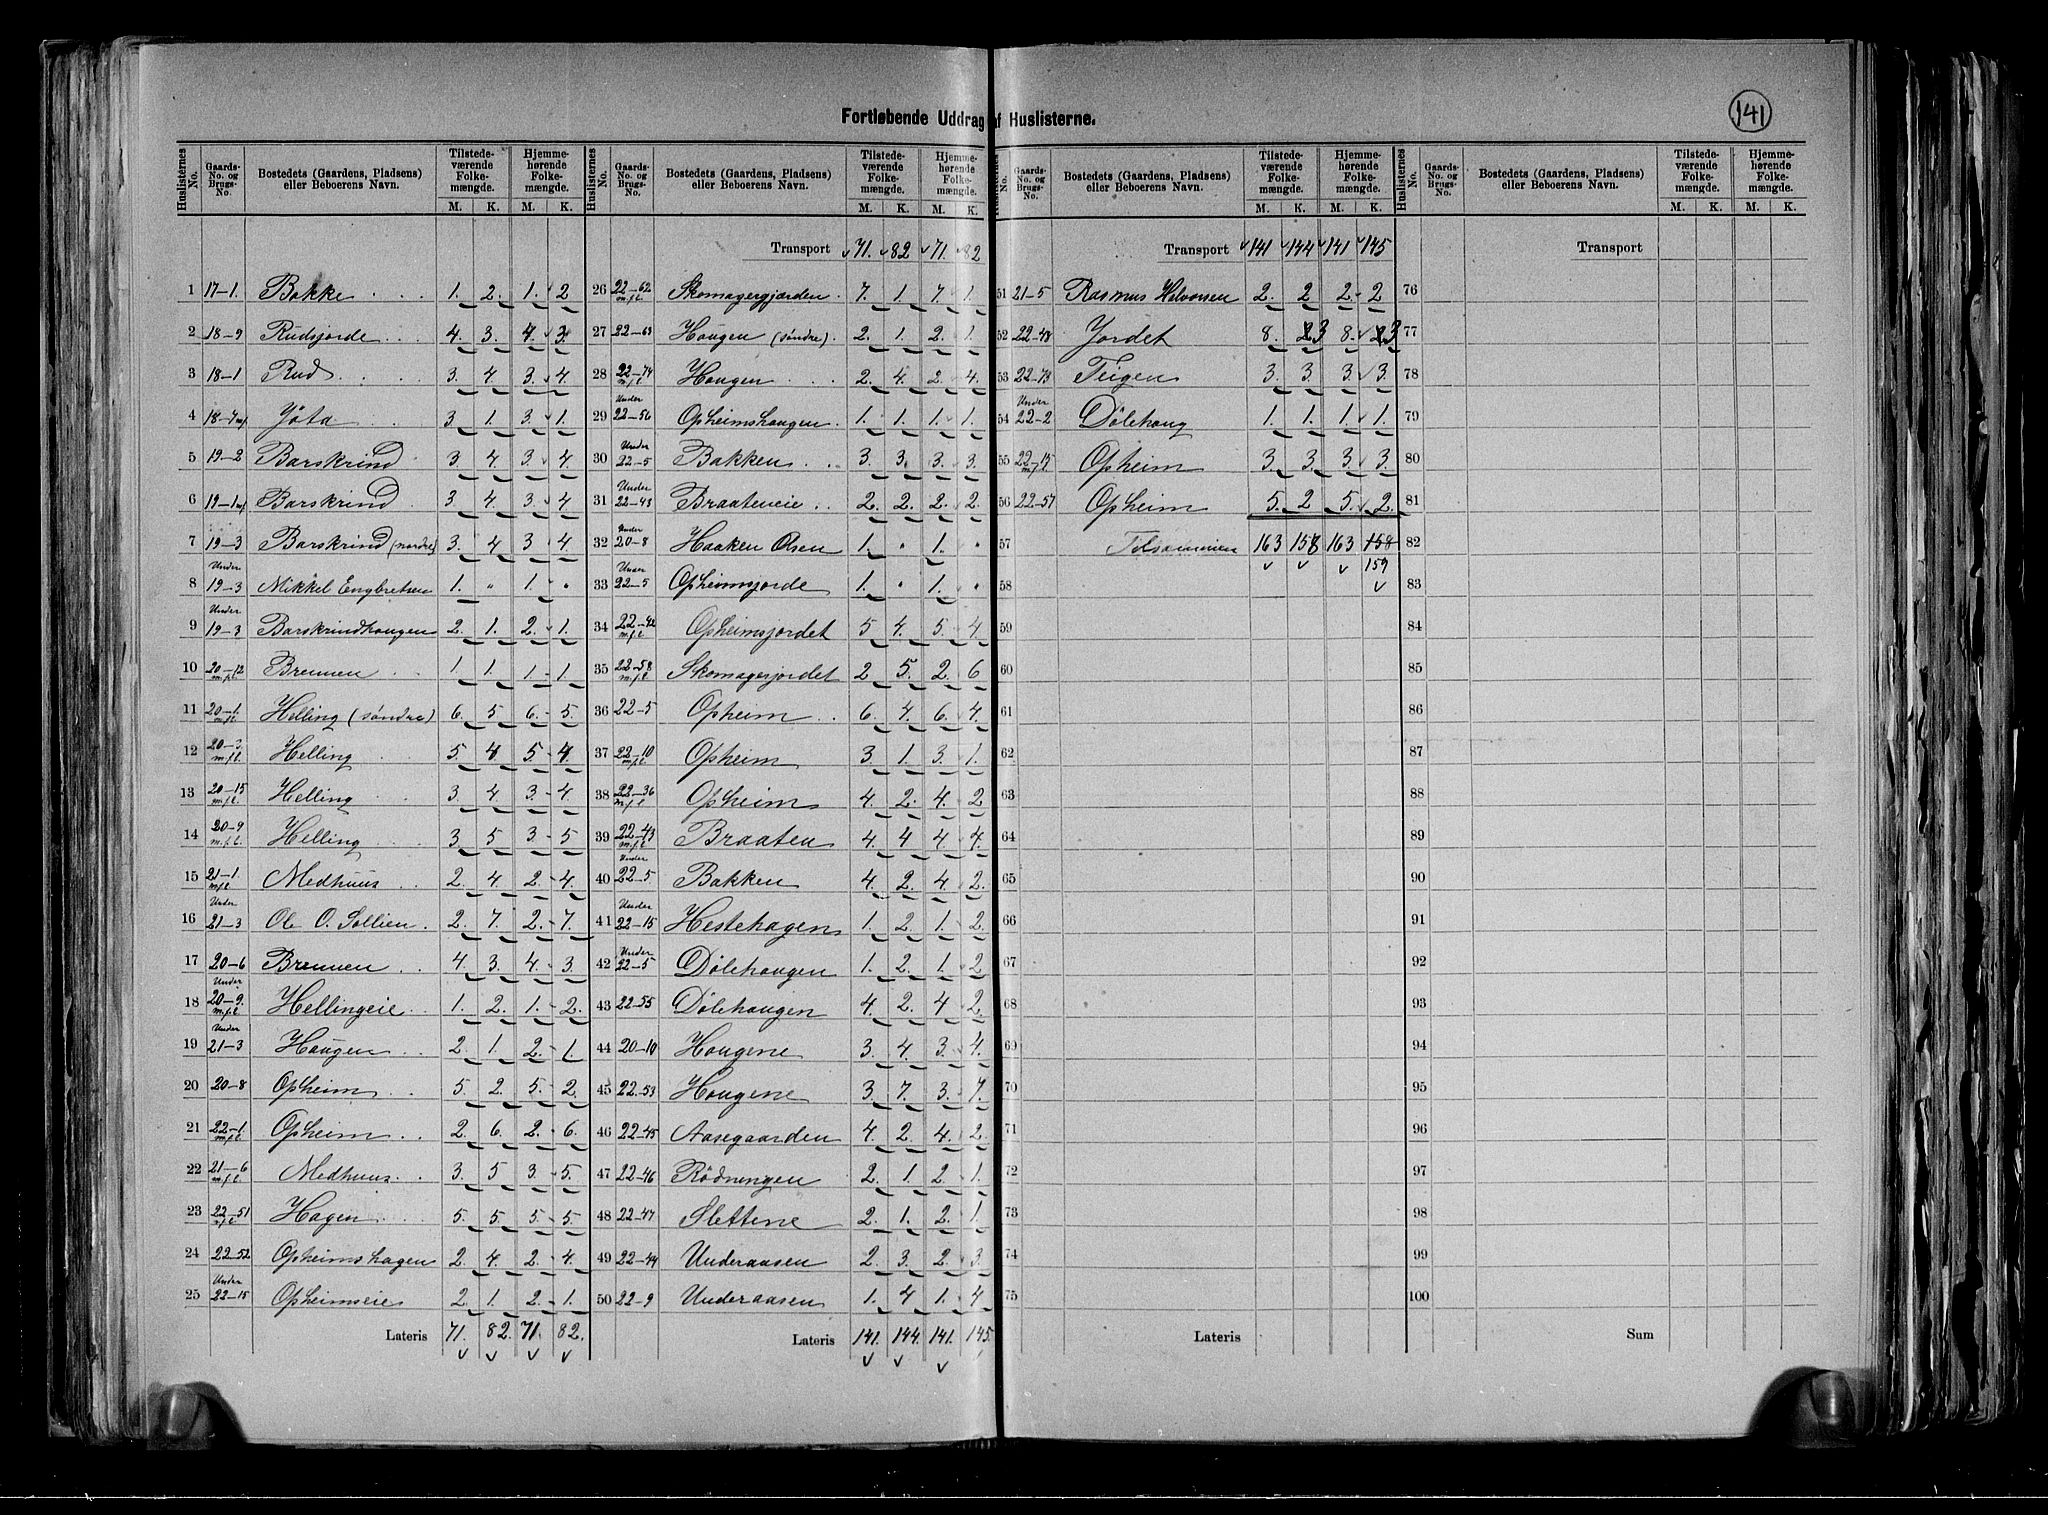 141
Fortløbende Uddrag af Huslisterne.
Huslisternes No. | Gaards-No. og Brugs-No. | Bostedets (Gaardens, Pladsens) eller Beboerens Navn. | Tilstedeværende Folkemængde. M. K. | Hjemmehørende Folkemængde. M. K.
1 17-1. Bakke 1. 2. 1. 2
2 18-9 Rudsjorde 4. 3. 4. 3.
3 18-1 Rud 3. 4. 3. 4.
4 18-7 Jôta 3. 1. 3. 1.
5 19-2 Barskrind 3. 4. 3. 4.
6 19-1 Barskrind 3. 4. 3. 4
7 19-3 Barskrind (nordre) 3. 4. 3. 4.
8 Under 19-3 Mikkel Engbretsen 1. " 1. "
9 Under 19-3 Barskrindhaugen 2. 1. 2. 1.
10 20-12 m.fl. Brennen 1. 1. 1. 1
11 20-1. m.fl. Helling (søndre) 6. 5 6. 5.
12 20-3 m.fl. Helling 5. 4 5. 4
13 20-15 m.fl. Helling 3. 4 3. 4.
14 20-9 m.fl. Helling 3. 5 3. 5
15 21-1. m.fl. Medhuus 2. 4. 2. 4.
16 Under 21-3 Ole O. Sollien 2. 7. 2. 7.
17 20-6 Brennen 4. 3. 4. 3.
18 Under 20-9. m.fl. Hellingeie 1. 2. 1. 2.
19 Under 21-3 Haugen 2. 1. 2. 1.
20 20-8 Opheim 5. 2. 5. 2.
21 22-1 m.fl. Opheim 2 6. 2. 6.
22 21-6 m.fl. Medhuus. 3. 5 3. 5.
23 22-51 m.fl. Hagen 5. 5. 5. 5.
24 22-52 Opheimshagen 2. 4. 2. 4.
25 Under 22-15 Opheimseie 2. 1. 2. 1.
Lateris 71. 82. 71. 82.
Huslisternes No. | Gaards-No. og Brugs-No. | Bostedets (Gaardens, Pladsens) eller Beboerens Navn. | Tilstedeværende Folkemængde. M. K. | Hjemmehørende Folkemængde. M. K.
Transport 71. 82 71. 82
26 22-62 m.fl. Skomagergjorden 7. 1. 7. 1.
27 22-63 Haugen (søndre) 2. 1. 2. 1.
28 22-74 m.fl. Haugen 2. 4. 2. 4.
29 Under 22-56 Opheimshaugen 1. 1. 1. 1.
30 Under 22-5 Bakken 3. 3. 3. 3.
31 Under 22-43 Braateneie 2. 2. 2. 2.
32 Under 20-8 Haaken Olsen 1. " 1. "
33 Under 22-5 Opheimsjorde 1. " 1. "
34 22-42 m.fl. Opheimsjordet 5 4. 5. 4
35 22-58 m.fl. Skomagerjordet 2 5. 2. 6
36 22-5 Opheim 6. 4. 6. 4.
37 22-10 m.fl. Opheim 3. 1. 3. 1.
38 22-36 m.fl. Opheim 4. 2. 4. 2
39 22-43 m.fl. Braaten 4. 4 4. 4.
40 Under 22-5 Bakken 4. 2. 4. 2.
41 Under 22-15 Hestehagen 1. 2. 1. 2.
42 Under 22-5 Dölehaugen 1. 2. 1. 2
43 22-55 Dölehaugen 4. 2. 4. 2.
44 20-10 Haugene 3. 4. 3. 4.
45 22-53 Haugene 3. 7. 3. 7.
46 22-45 Aasegaarden 4. 2. 4. 2.
47 22-46 Rödningen 2. 1. 2. 1.
48 22-47 Slettene 2. 1. 2. 1.
49 22-44 Underaasen 2. 3. 2. 3.
50 22-9 Underaasen 1. 4. 1. 4.
Lateris 141. 144. 141. 145.
Huslisternes No. | Gaards-No. og Brugs-No. | Bostedets (Gaardens, Pladsens) eller Beboerens Navn. | Tilstedeværende Folkemængde. M. K. | Hjemmehørende Folkemængde. M. K.
Transport 141 144 141 145
51 21-5 Rasmus Halvorsen 2. 2 2. 2
52 22-48 Jordet 8. 3 8. 3
53 22-73 Teigen 3. 3. 3. 3.
54 Under 22-2 Dölehaug 1. 1. 1. 1.
55 22-15 m.fl. Opheim 3. 3. 3. 3.
56 22-57 Opheim 5. 2 5. 2.
57 Tilsammen 163 158 163 158
58 159
59
60
61
62
63
64
65
66
67
68
69
70
71
72
73
74
75
Lateris
Huslisternes No. | Gaards-No. og Brugs-No. | Bostedets (Gaardens, Pladsens) eller Beboerens Navn. | Tilstedeværende Folkemængde. M. K. | Hjemmehørende Folkemængde. M. K.
Transport
76
77
78
79
80
81
82
83
84
85
86
87
88
89
90
91
92
93
94
95
96
97
98
99
100
Sum